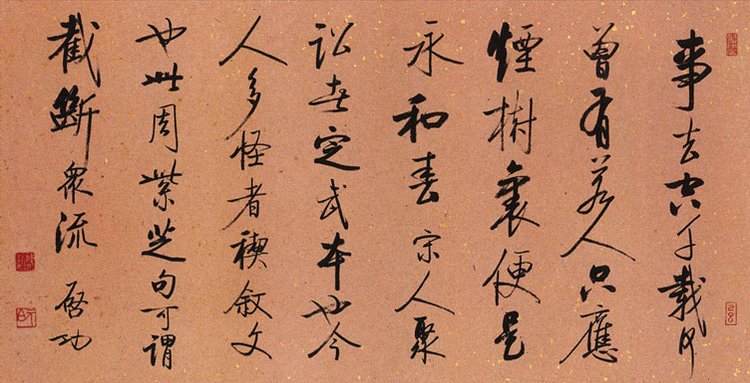 事去空千載何
曾有若人只應
煙樹裏便是
永和春 宋人聚
訟者定武本也今
人多怪者禊敘文
也此周紫芝句可謂
截斷衆流 啓功